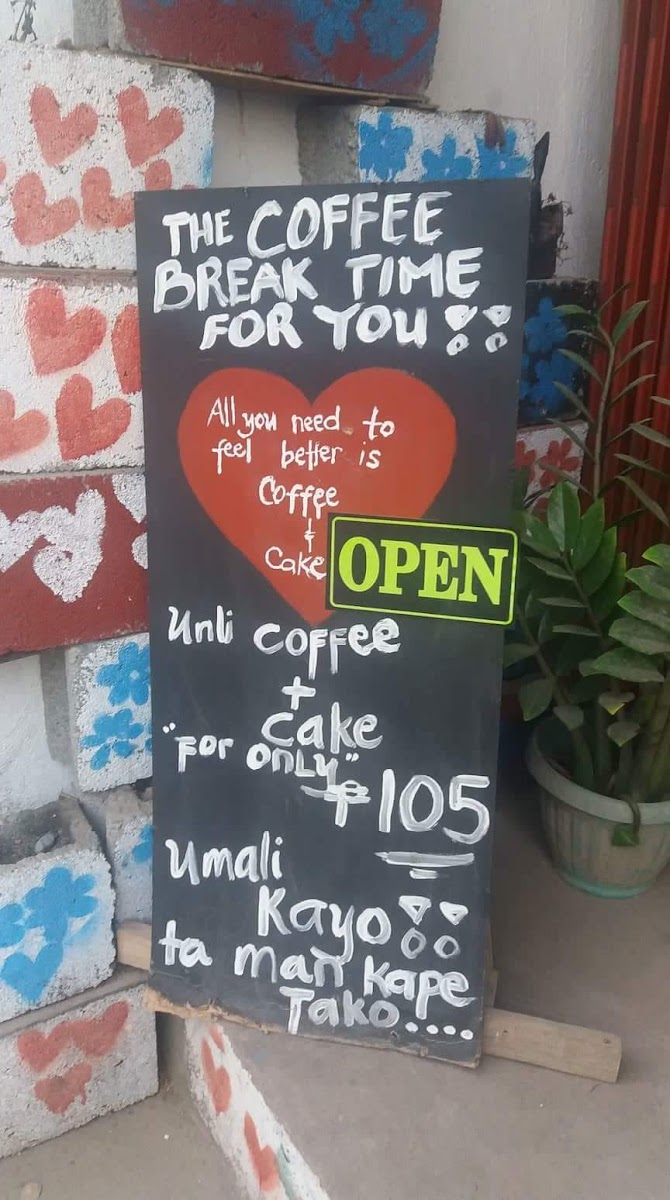 THE COFFEE
BREAK TIME
FOR YOU!!
All you need to
feel better is
Coffee
&
Cake
OPEN
Unli coffee
+
Cake
"For only"
₱105
Umali
Kayo!!
ta man kape
Tako....